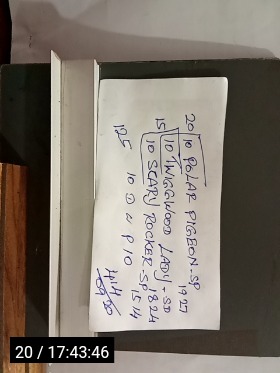 20 10 POLAR PIGEON-SP 1927
15 10 TWIGGWOOD LADY + SD 1824
10 SCARY ROCKER-SP 1514
125 10 D N P 10
20 / 17:43:46